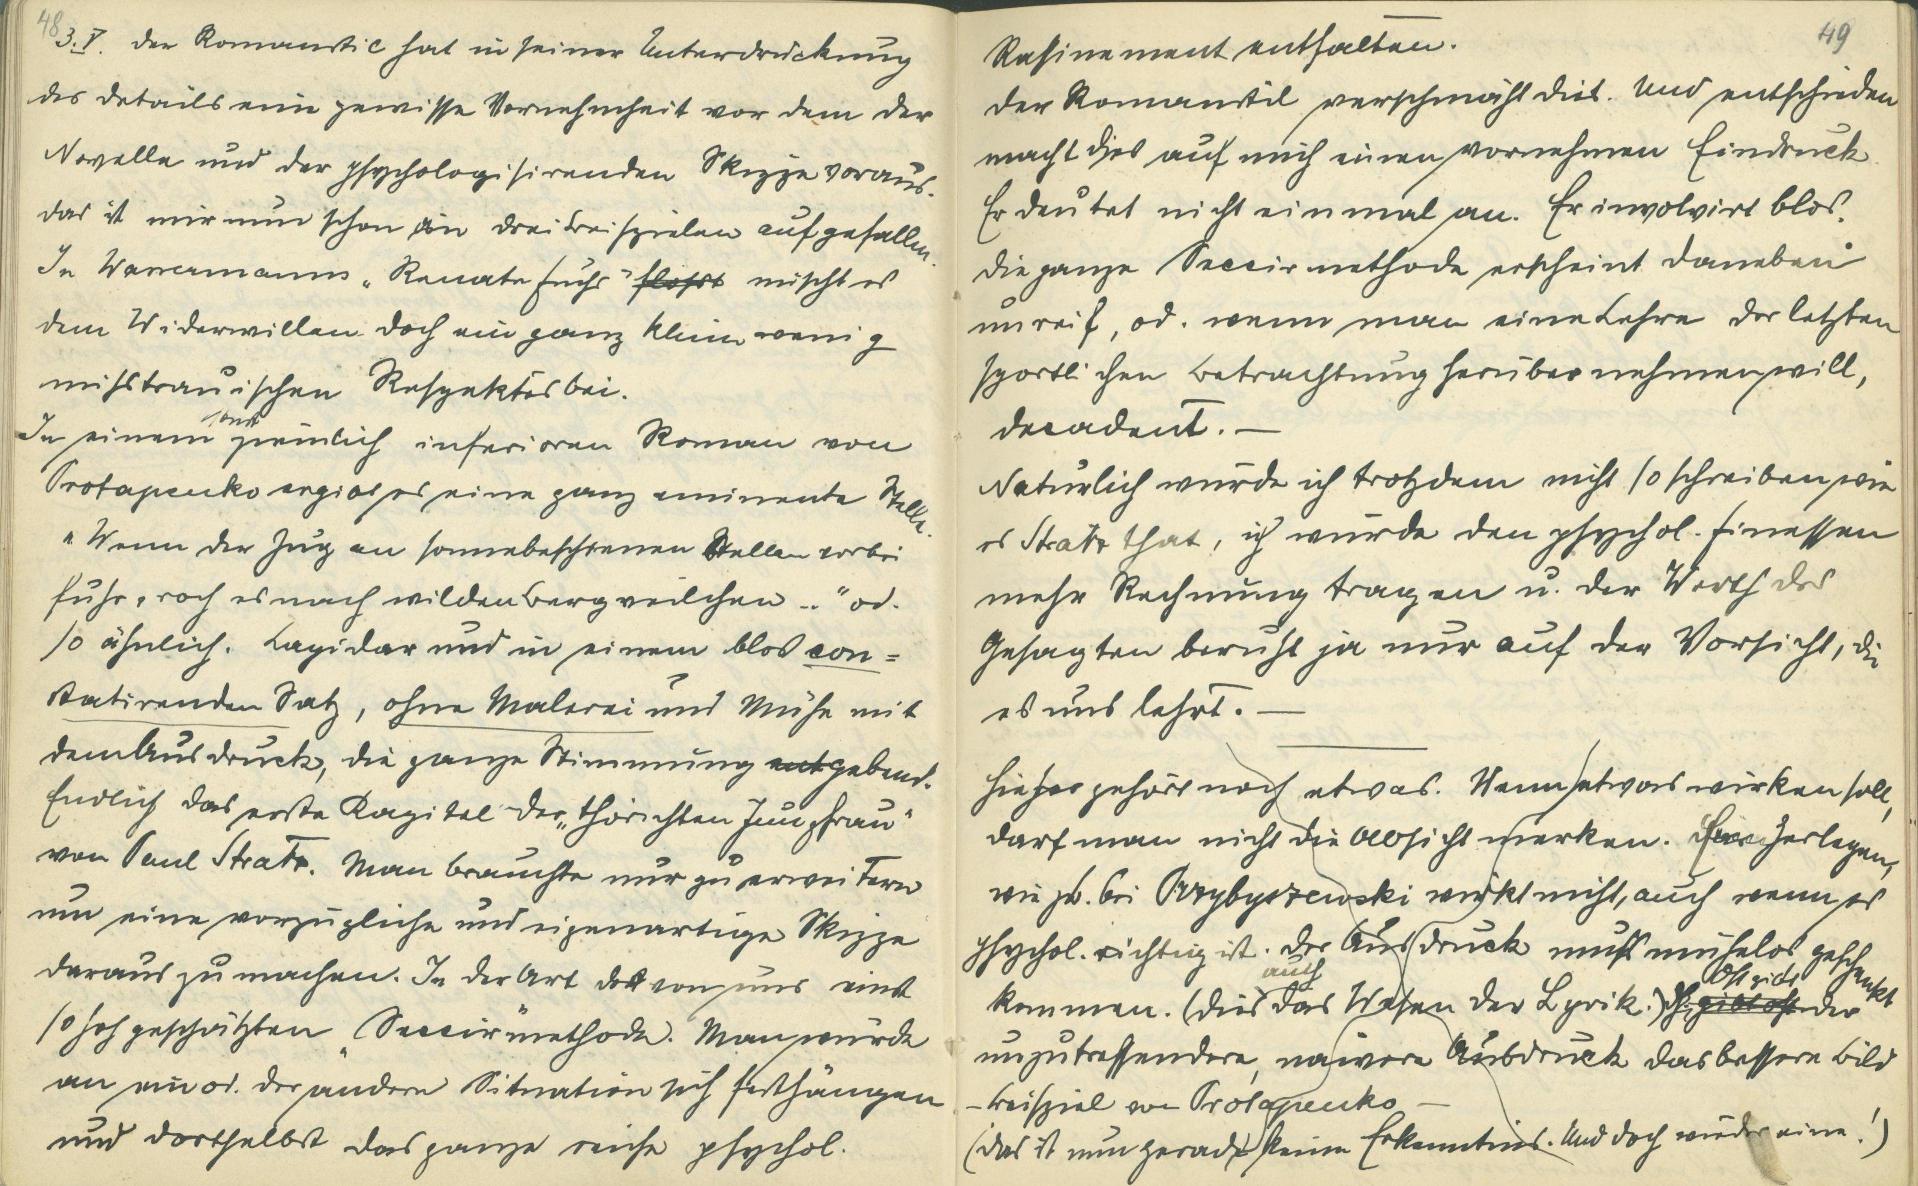 48
3. V. Der Romanstil hat in seiner Unterdrückung
des Details eine gewisse Vornehmheit vor dem der
Novelle und der psychologisirenden Skizze voraus.
Das ist mir nun schon an drei Beispielen aufgefallen.
In Wassermanns „Renate Fuchs" flößt mischt es
dem Widerwillen doch ein ganz klein wenig
mißtrauischen Respektes bei.
In einem sonst ziemlich inferioren Roman von
Potapenko ergibt es eine ganz eminente Stelle.
„Wenn der Zug an sonnebeschienenen Stellen vorbei
fuhr, roch es nach wilden Bergveilchen .." od.
so ähnlich. Lapidar und in einem blos con=
statirenden Satz, ohne Malerei und Mühe mit
dem Ausdruck, die ganze Stimmung gebend.
Endlich das erste Kapitel der „thörichten Jungfrau"
von Paul Stratz. Man brauchte nur zu erweitern
um eine vorzügliche und eigenartige Skizze
daraus zu machen. In der Art der von uns einst
so hoch geschätzten „Seccir"methode. Man würde
an ein od. der andern Situation sich festhängen
und dortselbst das ganze reiche psychol.
49
Rafinement entfalten.
Der Romanstil verschmäht dies. Und entschieden
macht dies auf mich einen vornehmen Eindruck.
Er deutet nicht einmal an. Er involvirt blos.
Die ganze Seccirmethode erscheint daneben
unreif, od. wenn man eine Lehre der letzten
sportlichen Betrachtung herübernehmen will,
decadent. —
Natürlich würde ich trotzdem nicht so schreiben wie
es Stratz that, ich würde den psychol. Finessen
mehr Rechnung tragen u. der Werth des
Gesagten beruht ja nur auf der Vorsicht, die
es uns lehrt. —
Hieher gehört noch etwas. Wenn etwas wirken soll,
darf man nicht die Absicht merken. Ein Zerlegen,
wie zb. bei Przybyszewski wirkt nicht, auch wenn es
psychol. richtig ist. Der Ausdruck muß mühelos geschenkt
kommen. (Dies auch das Wesen der Lyrik.) Oft gibt der
unzutreffendere, naivere Ausdruck das bessere Bild
– Beispiel von Potapenko –
(Das ist nun gerade keine Erkenntnis. Und doch wieder eine!)